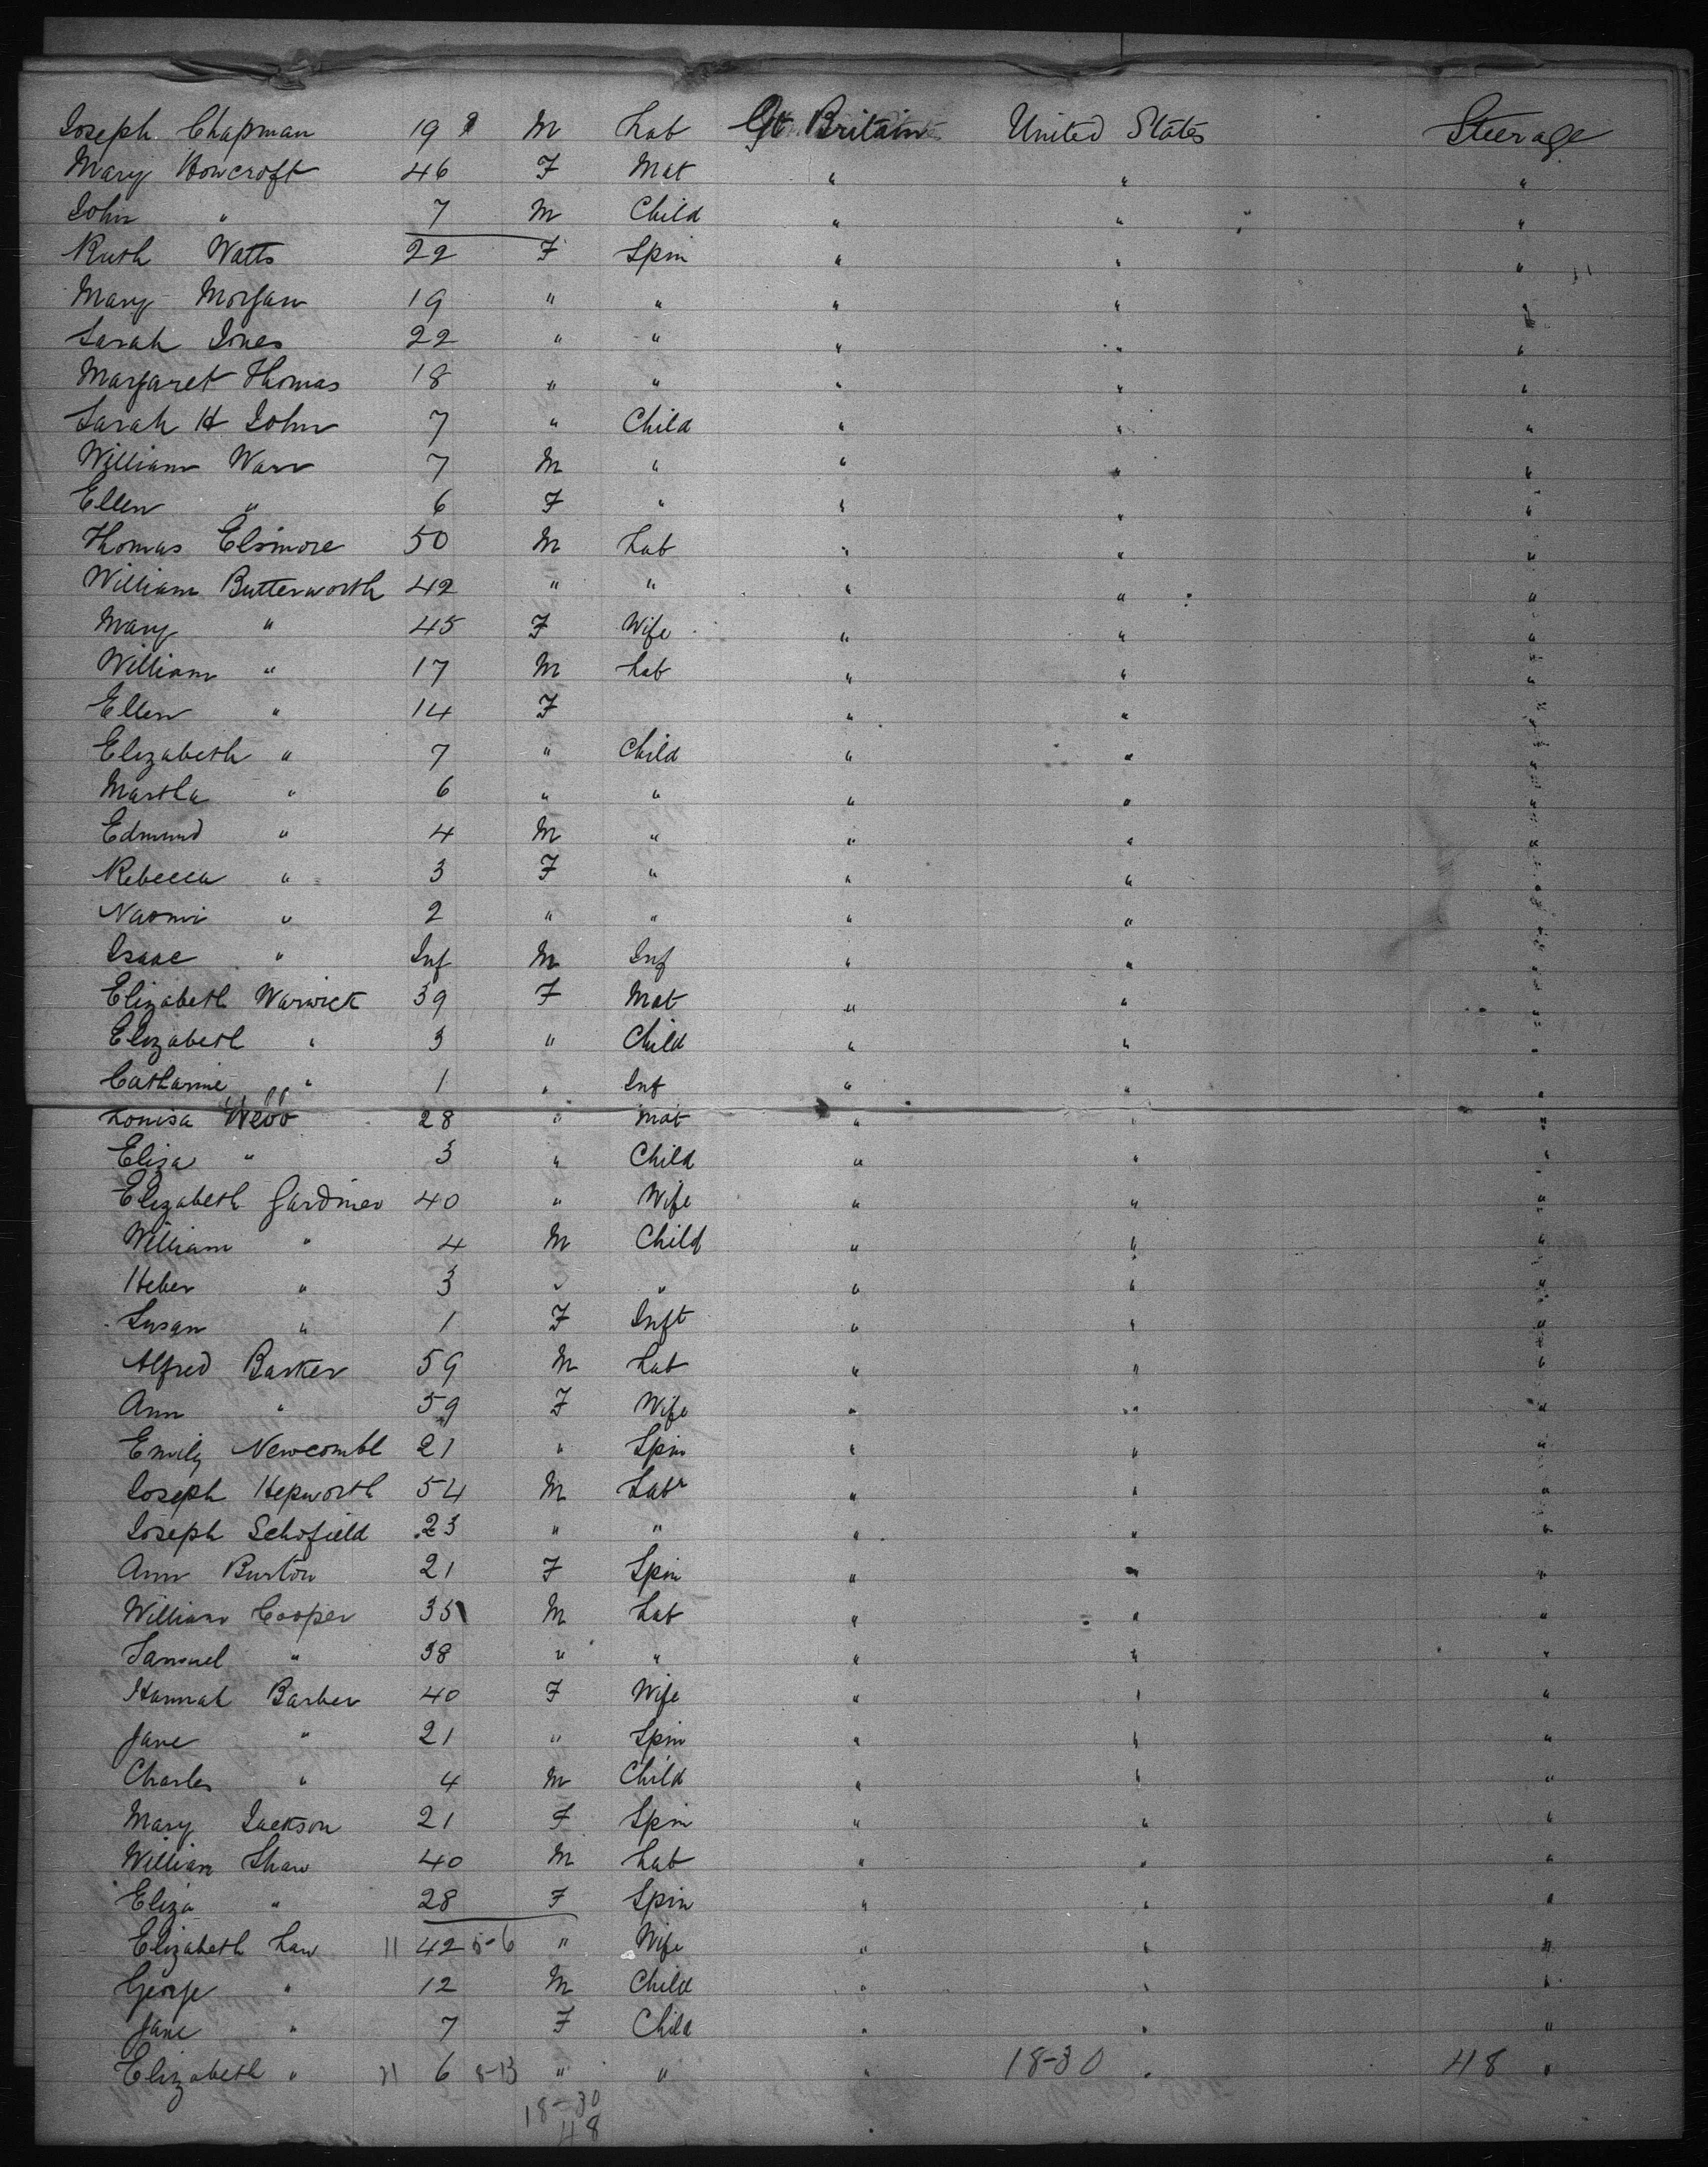 Joseph Chapman 19 M Lab Gt Britain United States Steerage
Mary Howcroft 46 F Mat " " "
John " 7 M Child " " "
Ruth Watts 22 F Spin " " "
Mary Morgan 19 " " " " "
Sarah Jones 22 " " " " "
Margaret Thomas 18 " " " " "
Sarah H John 7 " Child " " "
William Warr 7 M " " " "
Ellen " 6 F " " " "
Thomas Elsmore 50 M Lab " " "
William Butterworth 42 " " " " "
Mary " 45 F Wife " " "
William " 17 M Lab " " "
Ellen " 14 F " " "
Elizabeth " 7 " Child " " "
Martha " 6 " " " " "
Edmund " 4 M " " " "
Rebecca " 3 F " " " "
Naomi " 2 " " " " "
Isaac " Inf M Inf " " "
Elizabeth Warwick 39 F Mat " " "
Elizabeth " 3 " Child " " "
Catharine " 1 " Inf " " "
Louisa Webb 28 " Mat " " "
Eliza " 3 " Child " " "
Elizabeth Gardiner 40 " Wife " " "
William " 4 M Child " " "
Heber " 3 " " " " "
Susan " 1 F Inft " " "
Alfred Barker 59 M Lab " " "
Ann " 59 F Wife " " "
Emily Newcombe 21 " Spin " " "
Joseph Hepworth 54 M Labr " " "
Joseph Schofield 23 " " " " "
Ann Burton 21 F Spin " " "
William Cooper 35 M Lab " " "
Samuel " 38 " " " " "
Hannah Barber 40 F Wife " " "
Jane " 21 " Spin " " "
Charles " 4 M Child " " "
Mary Jackson 21 F Spin " " "
William Shaw 40 M Lab " " "
Eliza " 28 F Spin " " "
Elizabeth Law 11 42 5-6 " Wife " " "
George " 12 M Child " " "
Jane " 7 F Child " " "
Elizabeth " 11 6 8-13 " " " 18-30 " 48 "
18-30
48